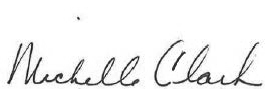 Michelle Clark